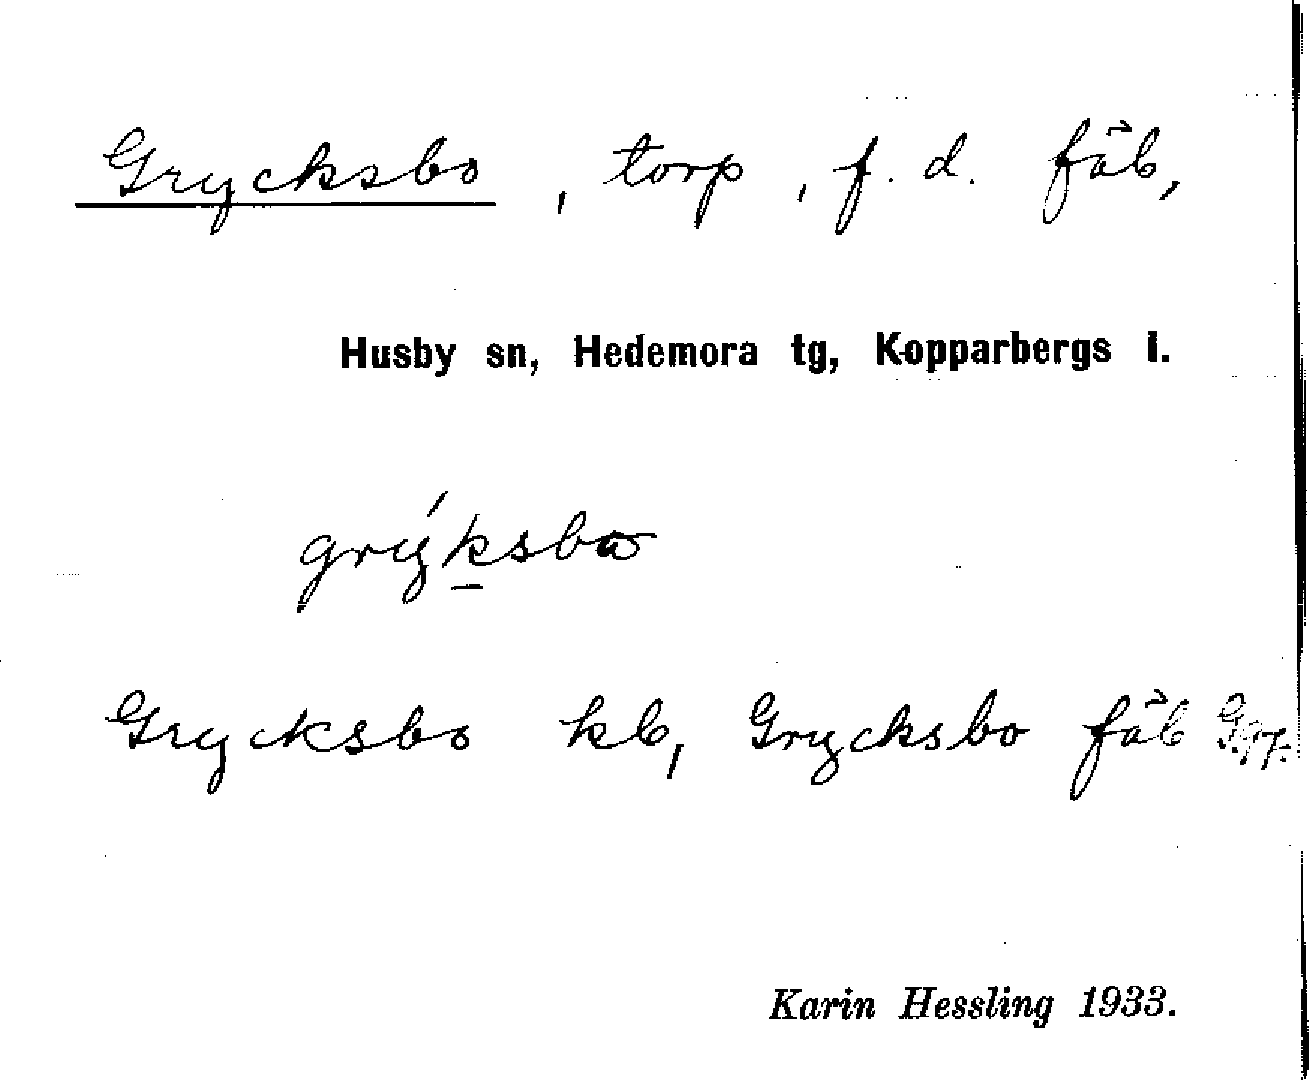 Grycksbo, torp, f. d. fäb,
Husby sn, Hedemora tg, Kopparbergs l.
grýksbω
Grycksbo kb, Grycksbo fäb
Karin Hessling 1933.